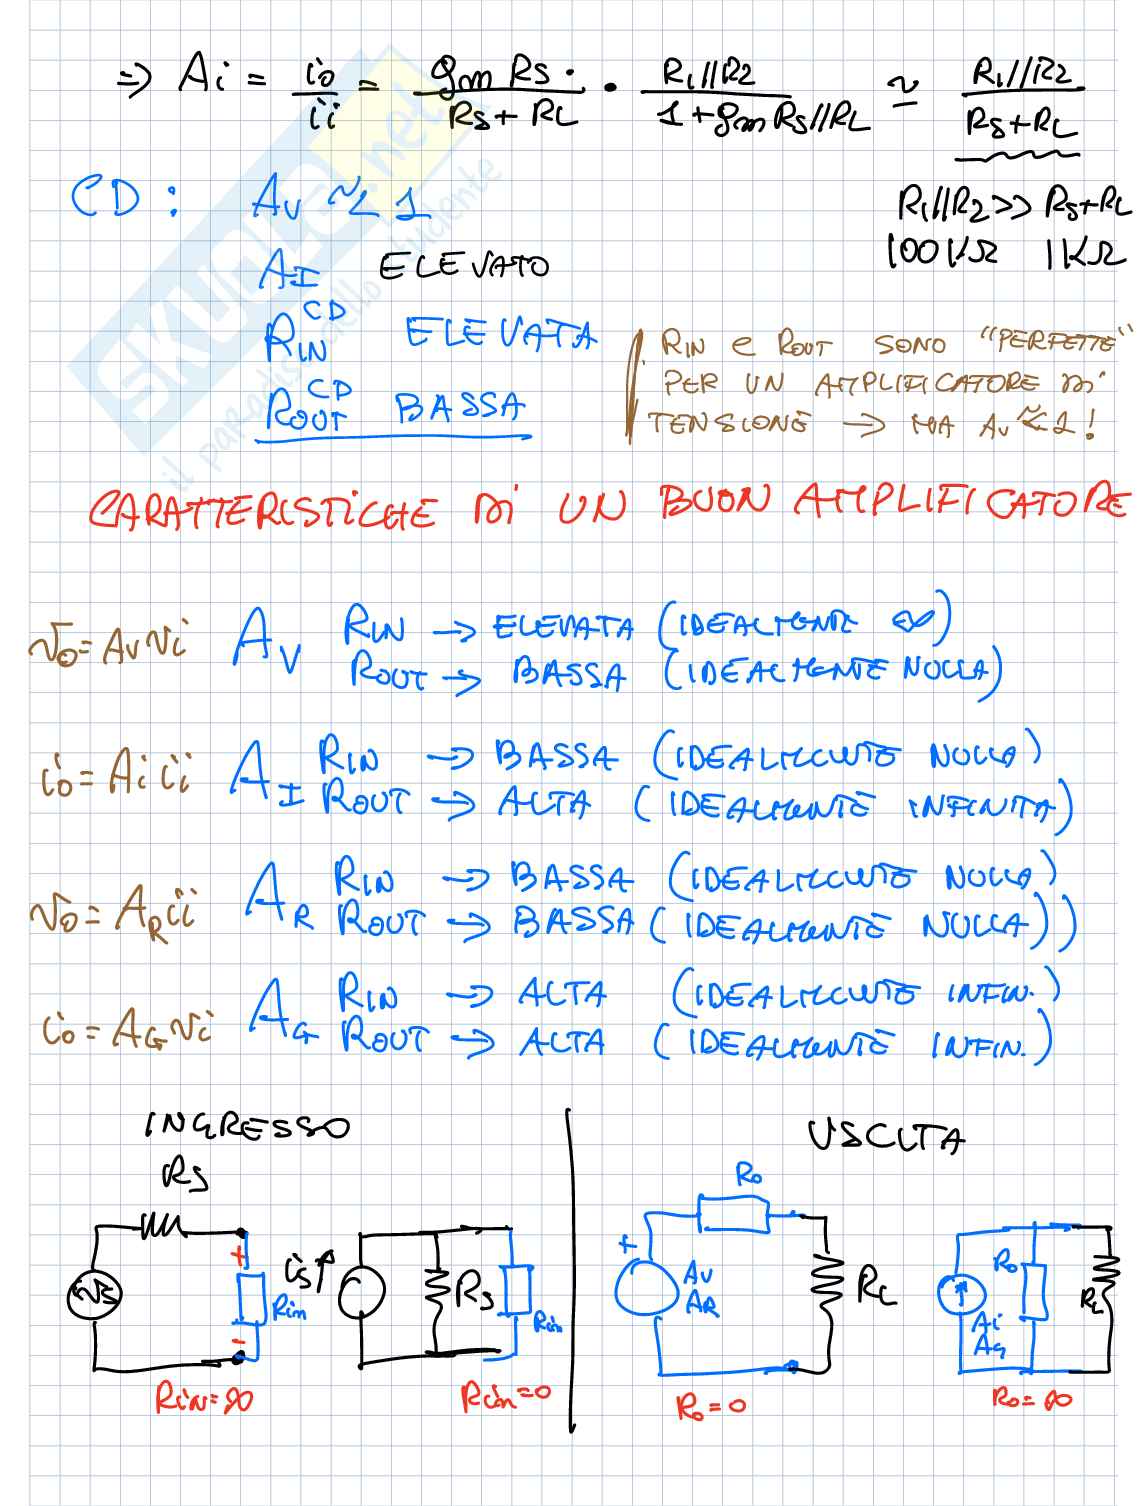 ⇒ Ai = io/ii = gm Rs/(Rs + RL) · R1//R2/(1 + gm Rs//RL) ≃ R1//R2/(Rs+RL)
R1//R2 >> Rs+RL
100KΩ 1KΩ
CD : Av ~< 1
AI ELEVATO
RIN CD ELEVATA
ROUT CD BASSA
RIN e ROUT SONO "PERFETTE"
PER UN AMPLIFICATORE DI
TENSIONE → MA Av ~< 1!
CARATTERISTICHE DI UN BUON AMPLIFICATORE
vo = Av vi AV RIN → ELEVATA (IDEALMENTE ∞)
ROUT → BASSA (IDEALMENTE NULLA)
io = Ai ii AI RIN → BASSA (IDEALMENTE NULLA)
ROUT → ALTA (IDEALMENTE INFINITA)
vo = AR ii AR RIN → BASSA (IDEALMENTE NULLA)
ROUT → BASSA (IDEALMENTE NULLA))
io = AG vi AG RIN → ALTA (IDEALMENTE INFIN.)
ROUT → ALTA (IDEALMENTE INFIN.)
INGRESSO
Rs
vs
+
-
Rin
Rin = ∞
is
Rs
Rin
Rin = 0
USCITA
Ro
+
Av
AR
RL
Ro = 0
Ro
Ai
AG
RL
Ro = ∞
SKUOLA.net
il paradiso dello studente